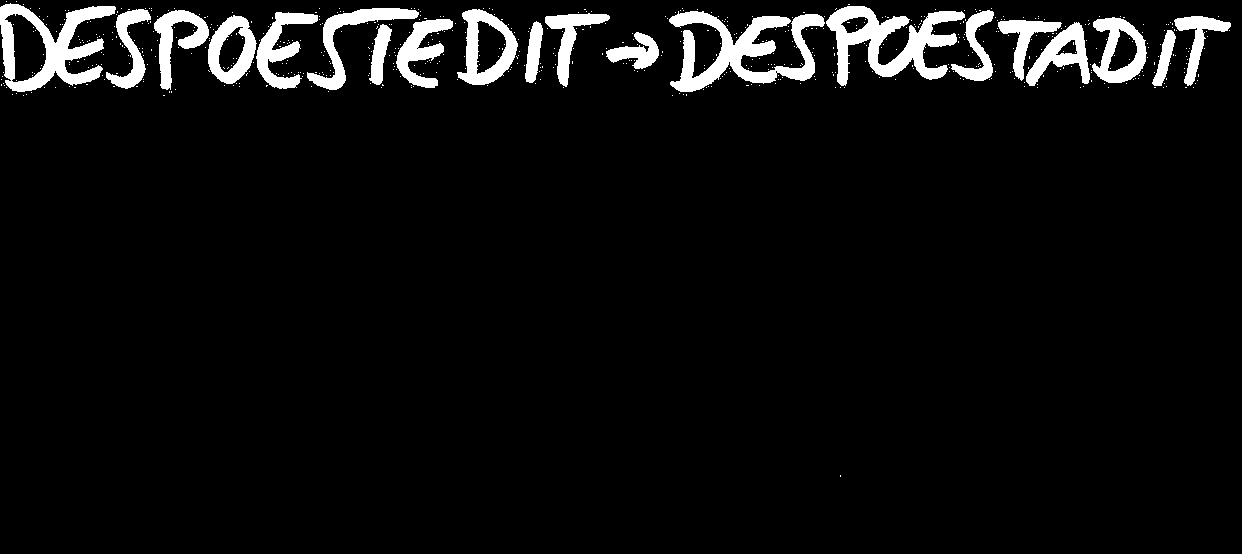 DESPOESTEDIT → DESPOESTADIT